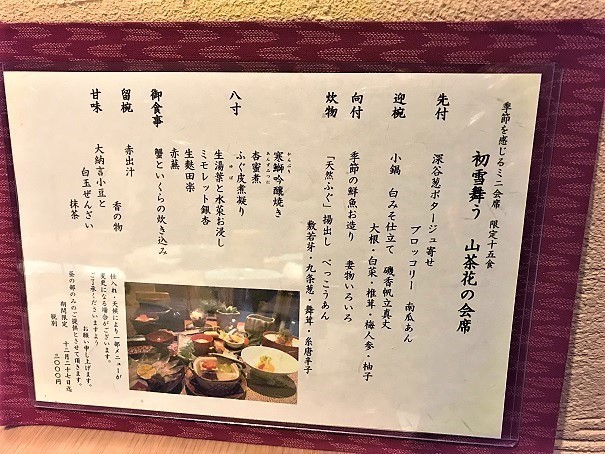 季節を感じるミニ会席　限定十五食
初雪舞う　山茶花の会席
先付　深谷葱ポタージュ寄せ
ブロッコリー　南瓜あん
迎椀　小鍋　白みそ仕立て　磯香帆立真丈
大根・白菜・椎茸・梅人参・柚子
向付　季節の鮮魚お造り　妻物いろいろ
炊物　「天然ふぐ」揚出し　べっこうあん
敷若芽・九条葱・舞茸・糸唐辛子
八寸　寒鰤吟醸焼き
かんぶり
杏蜜煮
あんずみつに
ふぐ皮煮凝り
生湯葉と水菜お浸し
ゆば
ミモレット銀杏
生麩田楽
赤蕪
御食事　蟹といくらの炊き込み
留椀　赤出汁　香の物
甘味　大納言小豆と
白玉ぜんざい　抹茶
仕入れ・天候により一部メニューが
変更になる場合がございます。
ご了承くださいますよう
お願い申し上げます。
昼の部のみのご提供とさせて頂きます。
期間限定　十二月二十七日迄
税別　三〇〇〇円